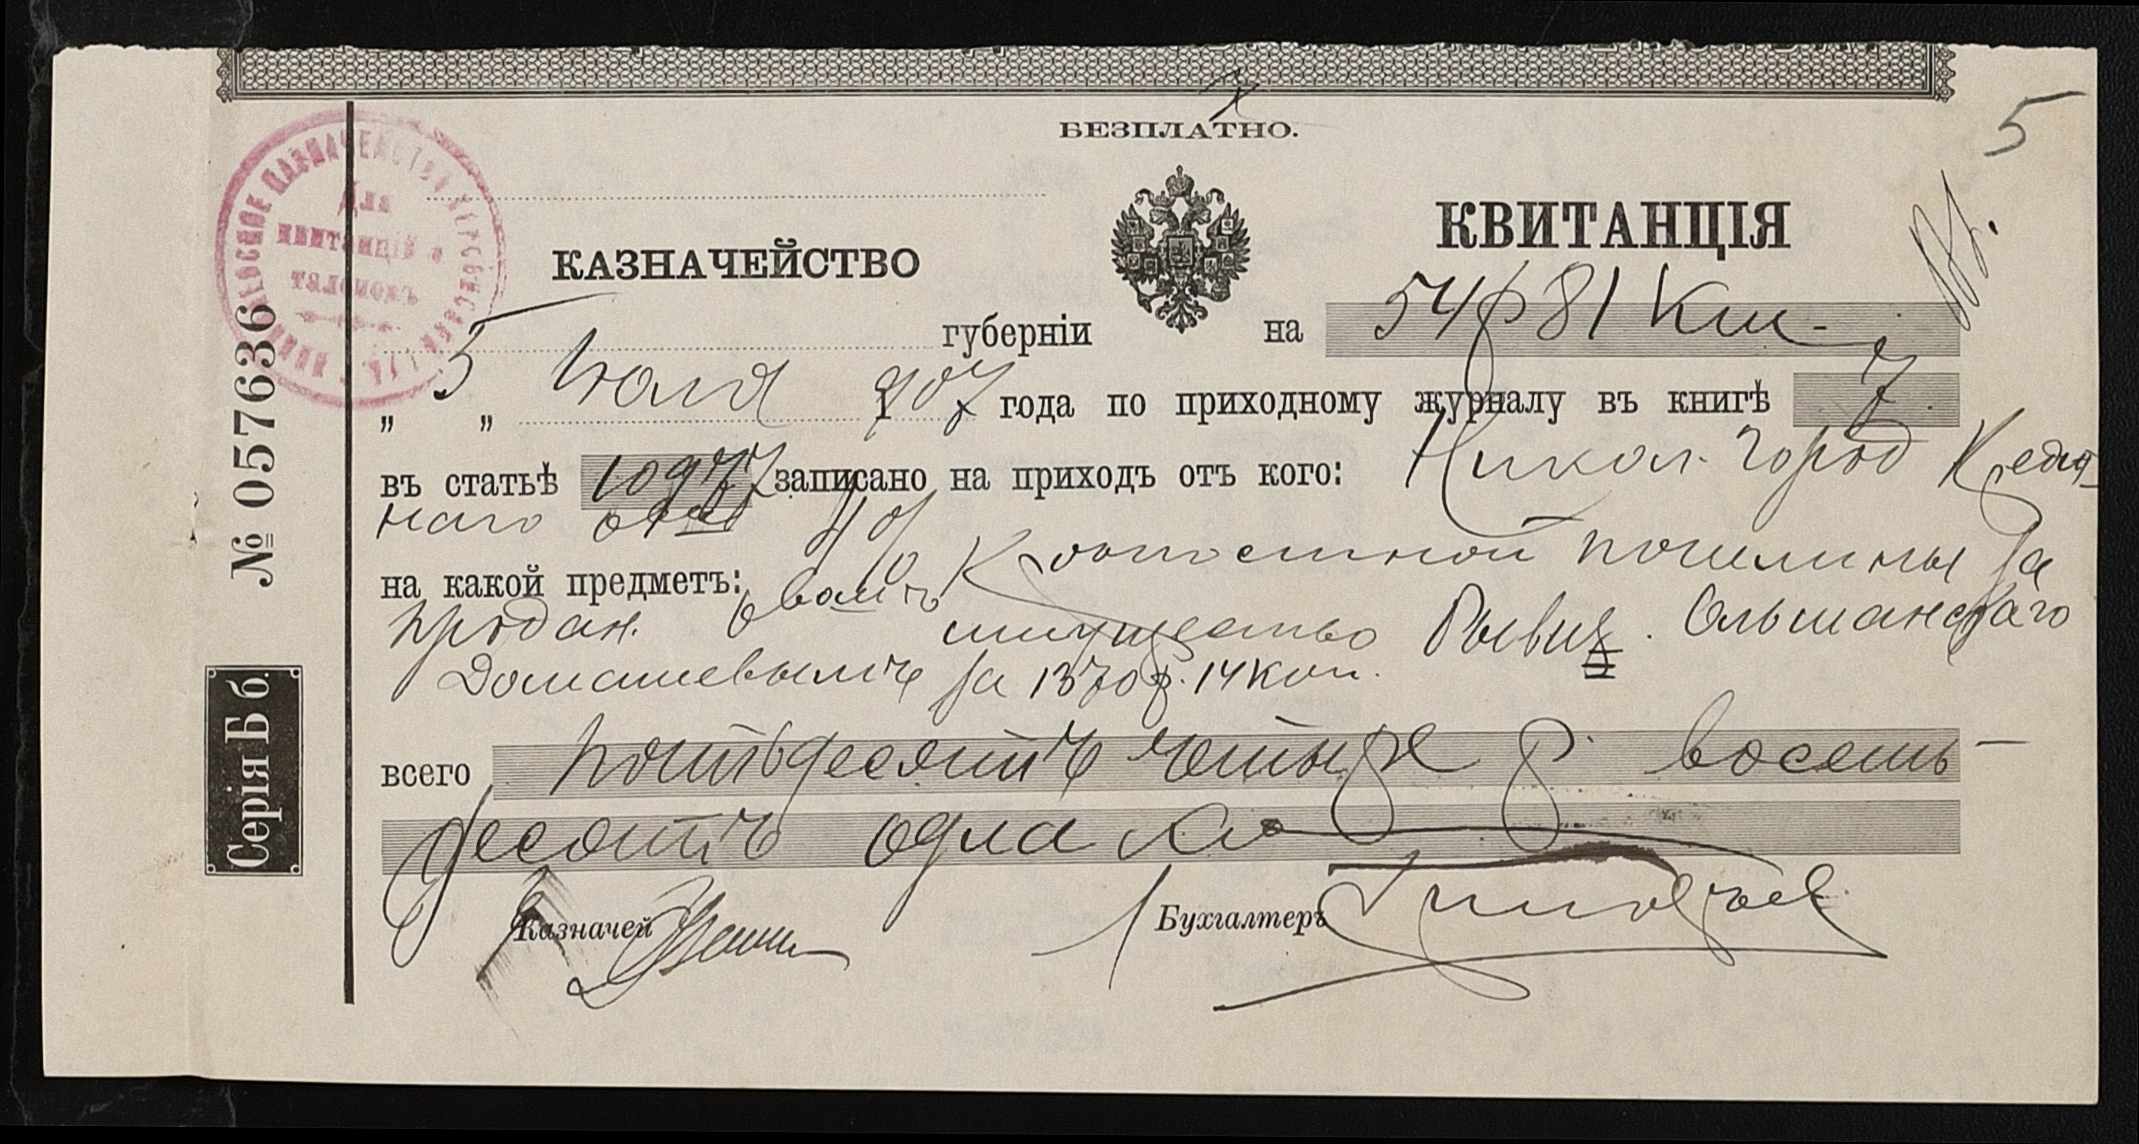 БЕЗПЛАТНО.
5
КАЗНАЧЕЙСТВО
КВИТАНЦІЯ
губерніи
на 54 р 81 Коп.
„ 5 „ Іюля 1907 года по приходному журналу въ книгѣ 7
въ статьѣ 10977 записано на приходъ отъ кого: Никол. Город Кредит-
наго
на какой предметъ: Крѣпостной пошлины за
продан. имущество Ольшанскаго
Домашевымъ за 1370 р. 14 коп.
всего пятьдесятъ четыре р. восемь-
десятъ одна к
Казначей
Бухгалтеръ
№ 057636
Серія Б б.
КАЗНАЧЕЙСТВО
Для
квитанцій и
талоновъ